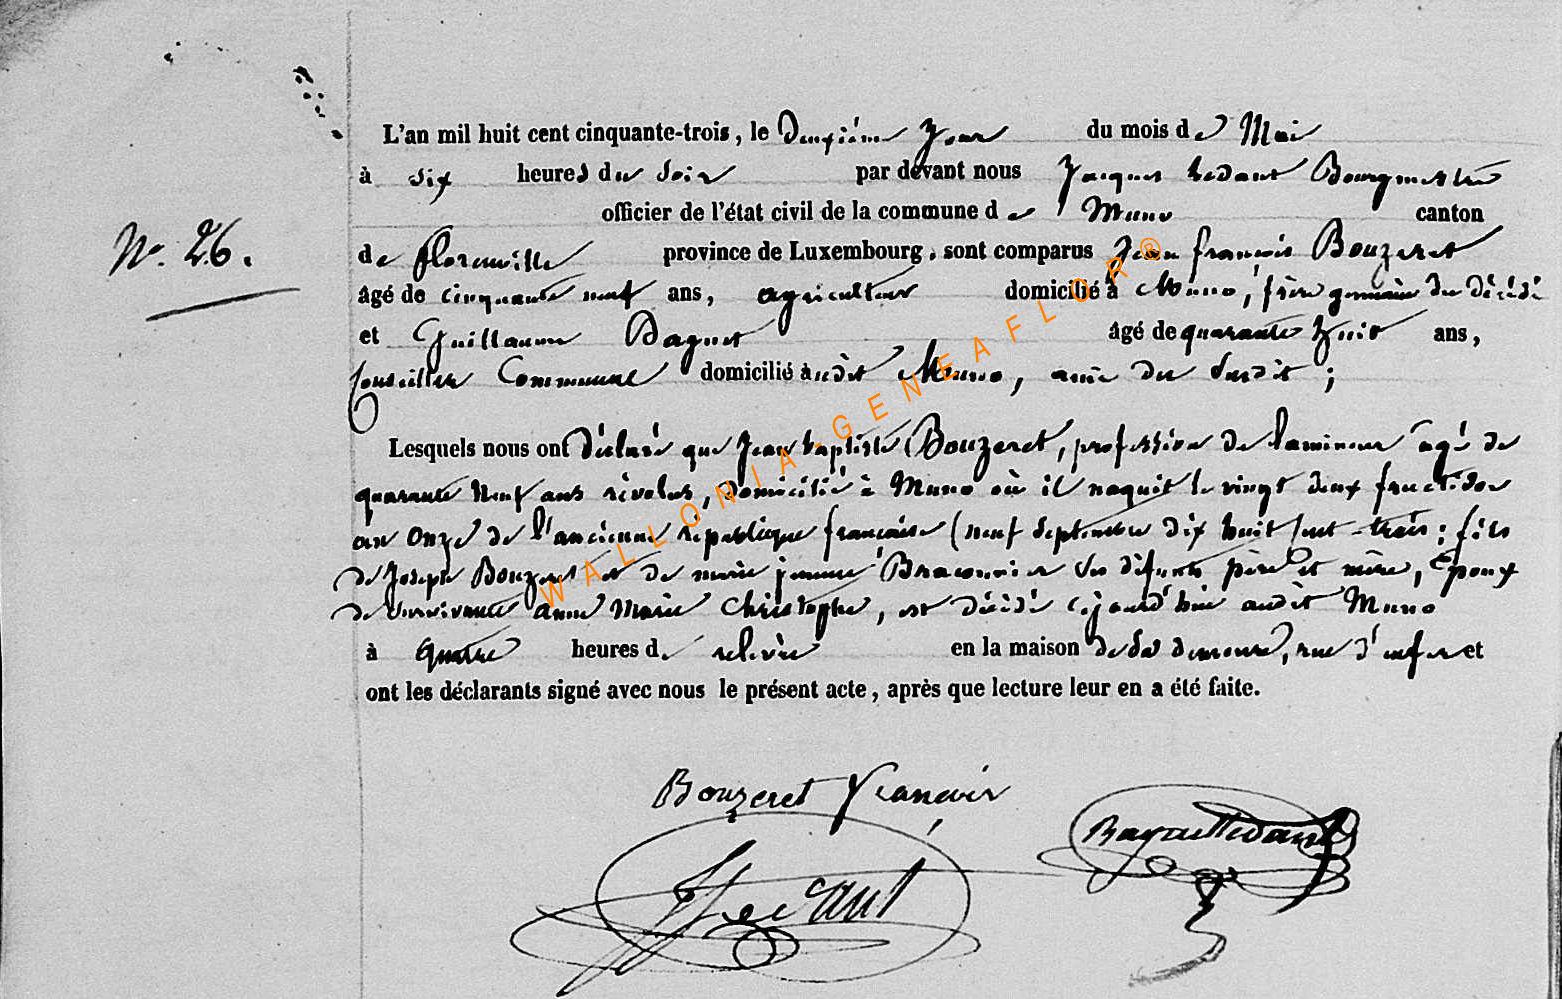 L'an mil huit cent cinquante-trois, le Deuxième Jour du mois de Mai
à six heures du soir par devant nous Jacques hedant Bourgmestre
officier de l'état civil de la commune de Muno canton
No. 26.
de florenville province de Luxembourg, sont comparus Jean françois Bouzeret
âgé de cinquante neuf ans, agriculteur domicilié à Muno, frère germain du décédé
et Guillaume Baquet âgé de quarante huit ans,
Conseiller Communal domicilié audit Muno, amis du susdit ;
Lesquels nous ont déclaré que Jean baptiste Bouzeret, profession de lamineur âgé de
quarante neuf ans révolus, domicilié à Muno où il naquit le vingt deux fructidor
an onze de l'ancienne république française (neuf septembre dix huit cent-trois; fils
de Joseph Bouzeret et de marie jeanne Braconnier ses défunts père et mère, époux
de survivante anne Marie Christophe, est décédé cejourd'hui audit Muno
à quatre heures de relevée en la maison de sa demeure, rue d'enfer et
ont les déclarants signé avec nous le présent acte, après que lecture leur en a été faite.
Bouzeret francois
JHedant
WALLONIA-GENEAFLOR®